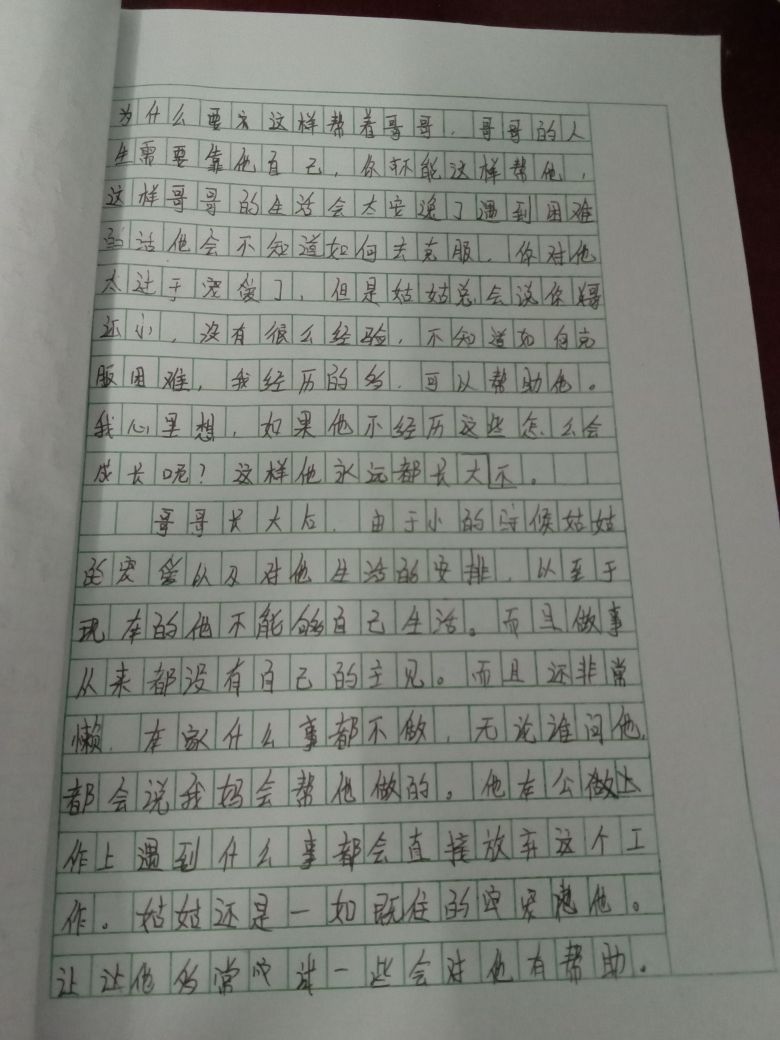 为什么要去这样帮着哥哥，哥哥的人
生需要靠他自己，你不能这样帮他，
这样哥哥的生活会太安逸了遇到困难
的话他会不知道如何去克服，你对他
太过于宠爱了，但是姑姑总会说你哥
还小，没有很么经验，不知道如何克
服困难，我经历的多，可以帮助他。
我心里想，如果他不经历这些怎么会
成长呢？这样他永远都长大不。
哥哥长大后，由于小的时候姑姑
的宠爱以及对他生活的安排，以至于
现在的他不能够自己生活。而且做事
从来都没有自己的主见。而且还非常
懒，在家什么事都不做，无论谁问他，
都会说我妈会帮他做的。他在公做上
作上遇到什么事都会直接放弃这个工
作。姑姑还是一如既往的宠他。
让他多尝一些会对他有帮助。